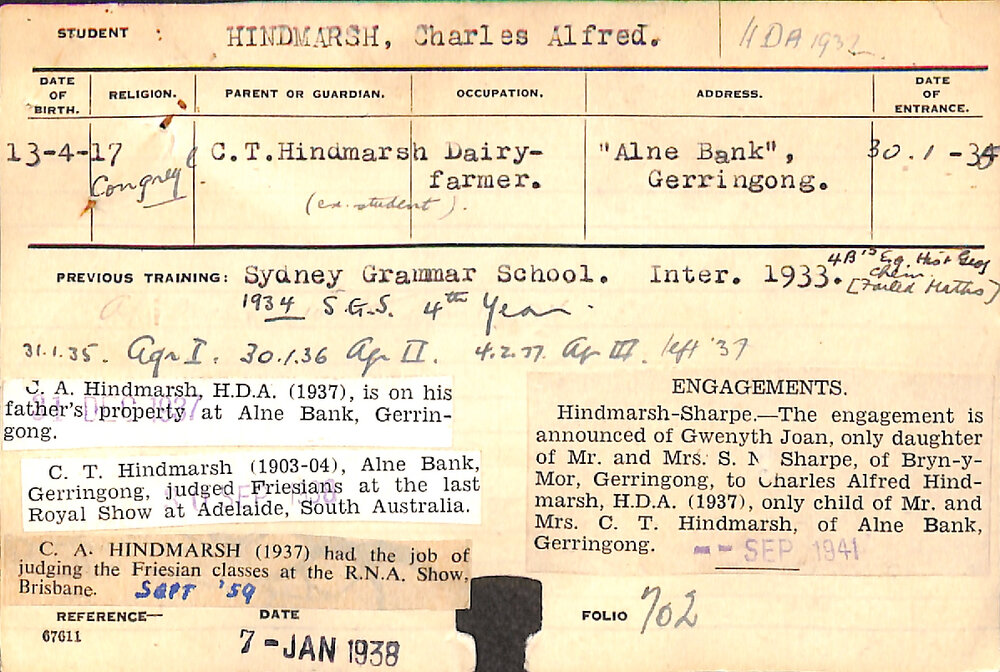 STUDENT : HINDMARSH, Charles Alfred. HDA 1937
DATE OF BIRTH. RELIGION. PARENT OR GUARDIAN. OCCUPATION. ADDRESS. DATE OF ENTRANCE.
13-4-17 C.T.Hindmarsh Dairy- "Alne Bank", 30.1-35
Congreg farmer. Gerringong.
(ex. student).
PREVIOUS TRAINING: Sydney Grammar School. Inter. 1933. 4B's Eng Hist Geog
Chem
[Failed Maths]
1934 S.G.S. 4th Year.
31.1.35. Agr I. 30.1.36 Agr II. 4.2.37. Agr III. left '37
C. A. Hindmarsh, H.D.A. (1937), is on his
father's property at Alne Bank, Gerrin-
gong.
DEC 1937
C. T. Hindmarsh (1903-04), Alne Bank,
Gerringong, judged Friesians at the last
Royal Show at Adelaide, South Australia.
SEP
C. A. HINDMARSH (1937) had the job of
judging the Friesian classes at the R.N.A. Show,
Brisbane. SEPT '59
ENGAGEMENTS.
Hindmarsh-Sharpe.—The engagement is
announced of Gwenyth Joan, only daughter
of Mr. and Mrs. S. N Sharpe, of Bryn-y-
Mor, Gerringong, to Charles Alfred Hind-
marsh, H.D.A. (1937), only child of Mr. and
Mrs. C. T. Hindmarsh, of Alne Bank,
Gerringong.
-- SEP 1941
REFERENCE— DATE FOLIO 702
67611 7-JAN 1938